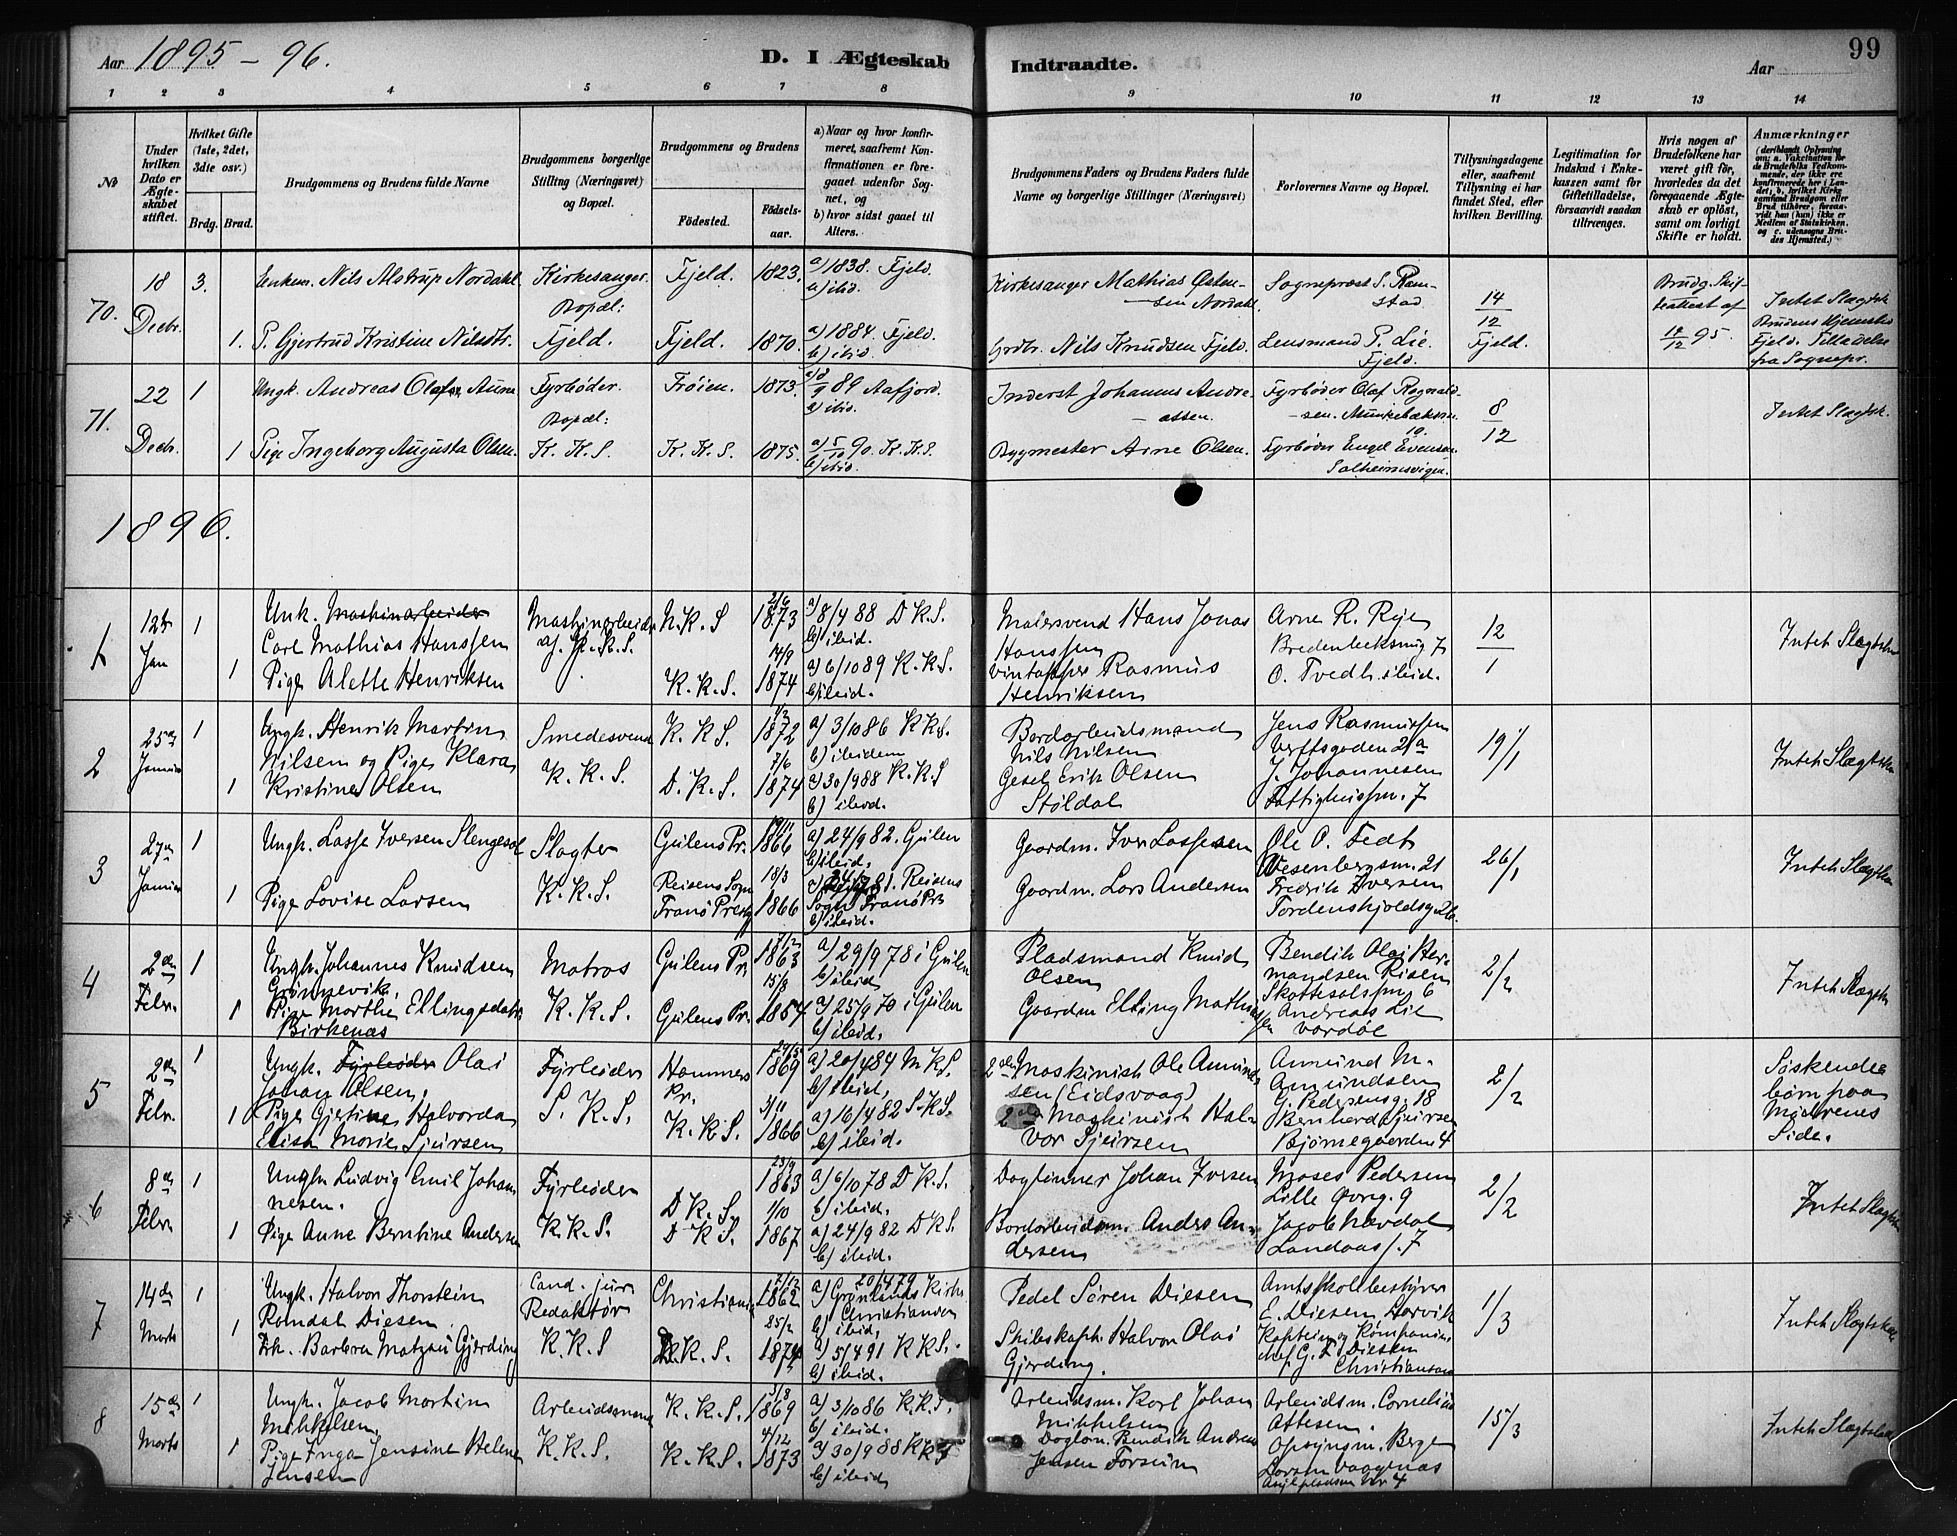 Aar 1895 – 96.
D. I Ægteskab Indtraadte.
Aar 99
1 2 3 4 5 6 7 8 9 10 11 12 13 14
№
Under hvilken Dato er Ægteskabet stiftet.
Hvilket Gifte (1ste, 2det, 3die osv.)
Brdg. Brud.
Brudgommens og Brudens fulde Navne
Brudgommens borgerlige Stilling (Næringsvei) og Bopæl.
Brudgommens og Brudens
Födested. Födselsaar.
a) Naar og hvor konfirmeret, saafremt Konfirmationen er foregaaet udenfor Sognet, og
b) hvor sidst gaaet til Alters.
Brudgommens Faders og Brudens Faders fulde Navne og borgerlige Stillinger (Næringsvei)
Forlovernes Navne og Bopæl.
Tillysningsdagene eller, saafremt Tillysning ei har fundet Sted, efter hvilken Bevilling.
Legitimation for Indskud i Enkekassen samt for Giftetilladelse, forsaavidt saadan tiltrænges.
Hvis nogen af Brudefolkene har været gift för, hvorledes da det foregaaende Ægteskab er oplöst, samt om lovligt Skifte er holdt.
Anmærkninger (deriblandt Oplysning om: a. Vakcination for de Brudefolks Vedkommende, der ikke ere konfirmerede her i Landet; b. hvilket Kirkesamfund Brudgom eller Brud tilhörer, forsaavidt han (hun) ikke er Medlem af Statskirken, og c. udensogns Brudes Hjemsted.)
70. 18 Decbr. 3. Enkem. Nils Alstrup Nordahl Kirkesanger. Fjeld. 1823. a) 1838. Fjeld. b) ibid.
Kirkesanger Mathias Østensen Nordahl. Sognepræst S. Ramstad. 14/12 Fjeld. Brudg. Skifteattest af 12/12 95. Intet Slægtsk. Brudens Hjemsted Fjeld. Tilladelse fra Sognepr.
1. P. Gjertrud Kristine Nilsdtr. Bopæl: Fjeld. Fjeld. 1870. a) 1884. Fjeld. b) ibid.
Grdbr. Nils Knudsen Fjeld. Lensmand P. Lie. Fjeld.
71. 22 Decbr. 1 Ungk. Andreas Olafsen Aune Fyrbøder. Frøien. 1873. a) 8/9 89 Aafjord. b) ibid.
Inderst Johannes Andreassen. Fyrbøder Olaf Ragnvaldsen. Munkebæksm. 19. 8/12 Intet Slægtsk.
1 Pige Ingeborg Augusta Olsen. Bopæl: K. K. S. K. K. S. 1875. a) 5/10 90. K. K. S. b) ibid.
Bygmester Arne Olsen. Fyrbøder Engel Evensen Solheimsvigen.
1896.
1 12te Jan 1 Unk. Maskinarbeider Carl Mathias Hanssen Maskinarbeider af K. K. S. N. K. S 2/6 1873 a) 8/4 88 D K. S. b) ibid.
Malersvend Hans Jonas Hanssen Arne R. Reje Bredenbecksmug 7 12/1 Intet Slægtskab
1 Pige Alette Henriksen K. K. S. 14/9 1874 a) 6/10 89 K. K. S. b) ibid.
Vintapper Rasmus Henriksen O. Tvedt. ibid.
2 25de Januar 1 Ungk. Henrik Martin Nilsen og Pige Klara Smedesvend K. K. S. 1872 a) 3/10 86 K K S. b) ibidem
Bordarbeidsmand Nils Nilsen Jens Rasmussen Verftsgaden 21a 19/1 Intet Slægtskab
1 Kristine Olsen K. K. S. D. K. S. 7/6 1874 a) 30/9 88 K. K. S b) ibid.
Gesel Erik Olsen Støldal J. Johannesen Fattighussm. 7
3 27de Januar 1 Ungk. Lasse Iversen Slengesol Slagter Gulens Pr. 1866 a) 24/9 82. Gulen b) ibid.
Gaardm. Iver Lassesen Ole O. Tedt Wesenbergsm. 21 26/1 Intet Slægtskab
1 Pige Lovise Larsen K. K. S. Reisens Sogn Tranø Præstg 18/3 1866 81. Reisens Sogn Tranø Pr b) ibid.
Gaardm. Lars Andersen Fredrik Iversen Tordenskjoldsg 26.
4 2den Febr. 1 Ungk. Johannes Knudsen Grønnevik. Matros Gulens Pr. 1863 a) 29/9 78 i Gulen b) ibid
Pladsmand Knud Olsen Bendik Olai Hermandsen Risen Skottesalsm. 6 2/2 Intet Slægtsk
1 Pige Marthe Ellingsdatter Birkenæs K. K. S. Gulens Pr. 15/8 1854 a) 25/9 70 i Gulen b) ibid.
Gaardm Elling Mathiassen Andreas Lie Vardøl
5 2den Febr. 1 Ungk. Fyrbøder Olai Johan Olsen. Fyrbøder Hammers Pr. 1869 a) 20/4 84 M K S. b) ibid.
2den Maskinist Ole Amundsen (Eidsvaag) Amund M. Amundsen G. Pedersensg. 18 2/2 Søskendebørn paa Mødrenes Side.
1 Pige Gjertine Halvorda Elisa Marie Sjursen S. K. S. K. K S. 3/11 1866 a) 16/4 82 S. K S. b) ibid.
2den Maskinist Halvor Sjursen Bernhard Sjursen Bjørnegaarden 4
6 8de Febr 1 Ungk Ludvig Emil Johannesen. Fyrbøder D K. S. 23/9 1863 a) 6/10 78 D K. S. b) ibid.
Dagtinner Johan Iversen Moses Pedersen Lille Øvreg. 9 2/2 Intet Slægtskab
1 Pige Anne Berntine Andersen K. K. S. D K S. 1/10 1867 a) 24/9 82 D K S. b) ibid.
Bordarbeidsm. Anders Andersen Jacob Løvdal Landaas s. 7
7 14de Marts 1 Ungk. Halvor Thorstein Romdal Diesen Cand. jur Redaktør Christiania 7/12 1862 a) 20/4 79 Grønlands Kirke Christiania b) ibid,
Pedel Sören Diesen Amtsskolebestyrer E. Diesen Norvik 1/3 Intet Slægtskab
1 Frk. Barbra Matzau Gjerding K. K. S K. S. 1874 a) 5/4 91 K K S. b) ibid.
Skibskapt. Halvor Olai Gjerding. Kaptein og Kompanichef G. Diesen Christiansand
8 15de Marts 1 Ungk. Jacob Martin Mikkelsen. Arbeidsmand K. K. S. 3/8 1869 a) 3/10 86 K. K. S. b) ibid.
Arbeidsm. Karl Johan Mikkelsen Arbeidsm. Cornelius Attesen. 15/3 Intet Slægtskab
1 Pige Inga Jensine Helene Jensen K. K. S. K. K S. 4/12 1873 a) 30/9 88 K K S b) ibid
Dagløn. Bendik Andreas Jensen Forsum Opsynsm. Berge Larsen Vaagenæs Asylpladsen No 4